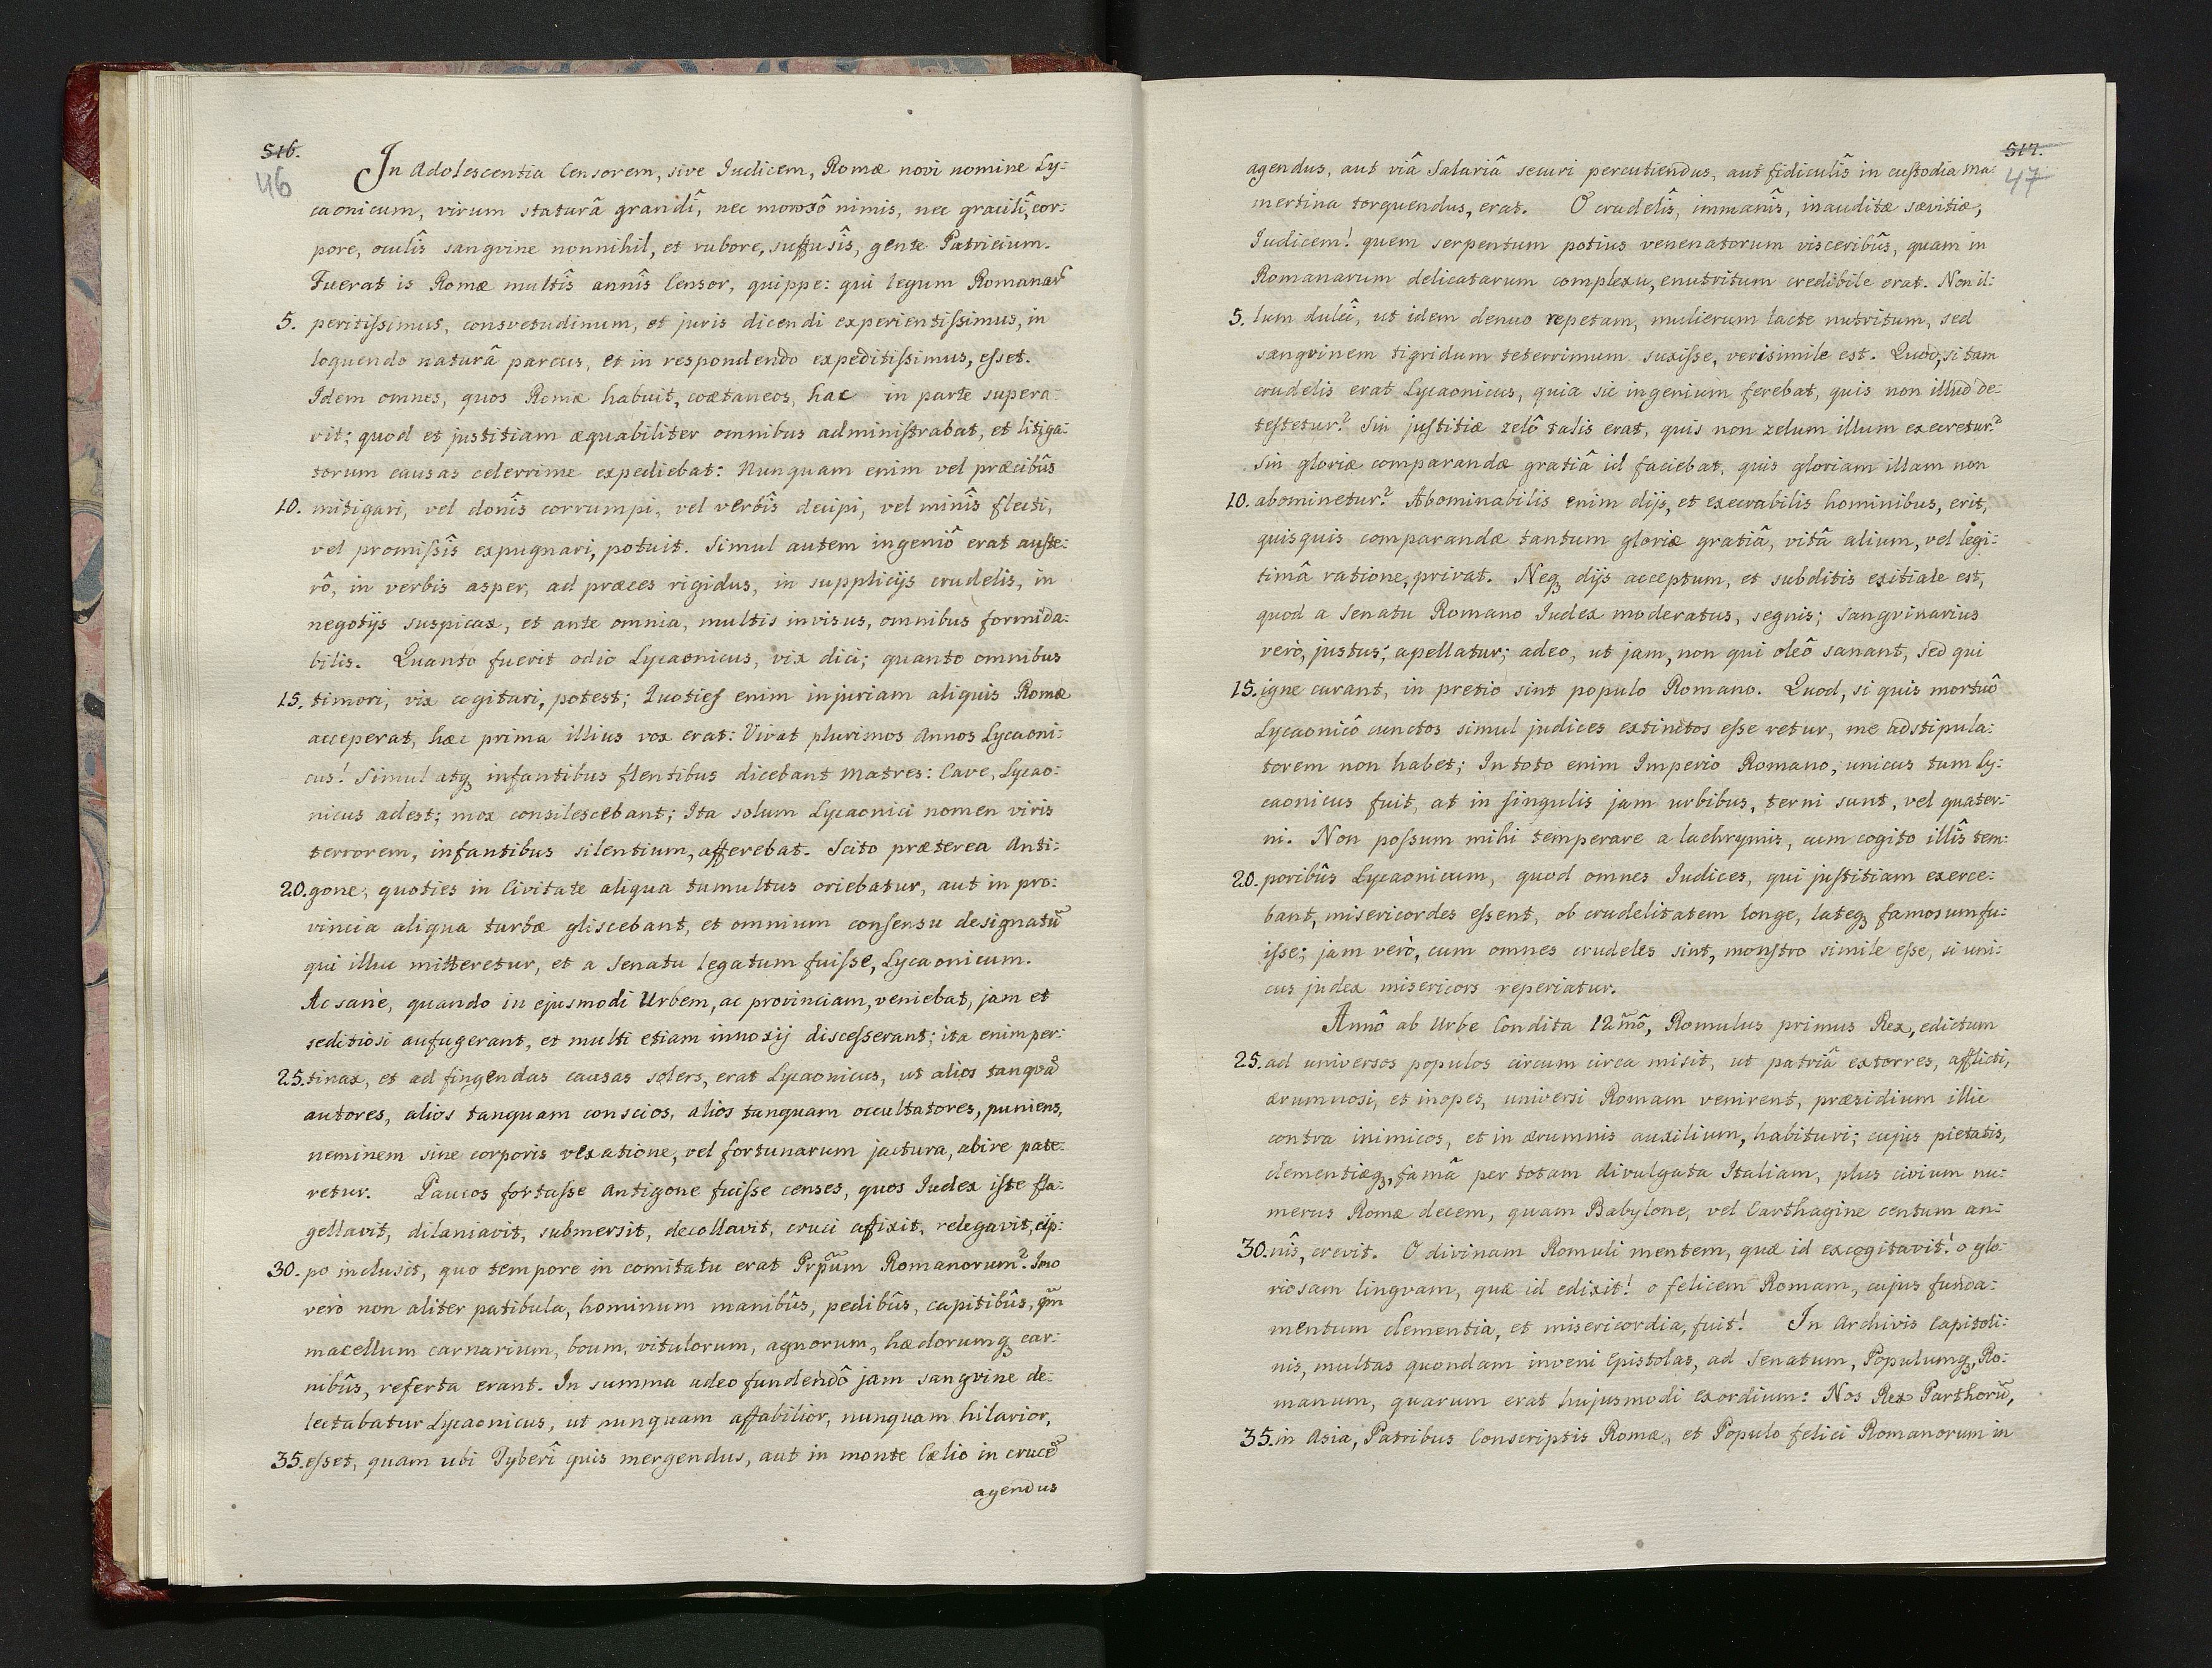 516.
46
In Adolescentia Censorem, sive Iudicem, Romæ novi nomine Ly:
caonicum, virum staturâ grandî, nec morosô nimis, nec gracilî, cor:
pore, oculîs sangvine nonnihil, et rubore, suffusîs, gente Patricium.
Fuerat is Romæ multîs annîs Censor, quippe: qui legum Romanar̃
5. peritiſsimus, consvetudinum, et juris dicendi experientiſsimus, in
loquendo naturâ parcus, et in respondendo expeditiſsimus, eſset.
Idem omnes, quos Romæ habuit, coætaneos, hac in parte supera:
vit; quod et justitiam æquabiliter omnibus adminiſtrabat, et litiga:
torum causas celerrime expediebat: Nunquam enim vel præcibûs
10. mitigari, vel donîs corrumpi, vel verbîs decipi, vel minîs flecti,
vel promiſsîs expugnari, potuit. Simul autem ingeniô erat auſte:
rô, in verbis asper, ad præces rigidus, in supplicijs crudelis, in
negotijs suspicax, et ante omnia, multis invisus, omnibus formida:
bilis. Quanto fuerit odio Lycaonicus, vix dici; quanto omnibus
15. timori, vix cogitari, potest; Quotieſ enim injuriam aliquis Romæ
acceperat, hæc prima illius vox erat: Vivat plurimos Annos Lycaoni:
cus! Simul atq, infantibus flentibus dicebant Matres: Cave, Lycao:
nicus adest; mox consilescebant; Ita solum Lycaonici nomen viris
terrorem, infantibus silentium, afferebat. Scito præterea Anti:
20. gone, quoties in Civitate aliqua tumultus oriebatur, aut in pro:
vincia aliqua turbæ gliscebant, et omnium conſensu designatũ
qui illuc mitteretur, et a Senatu legatum fuiſse, Lycaonicum.
Ac sanè, quando in ejusmodi Urbem, ac provinciam, veniebat, jam et
seditiosi aufugerant, et multi etiam innoxij disceſserant; ita enim per:
25. tinax, et ad fingendas causas solers, erat Lycaonicus, ut alios tanquã
autores, alios tanquam conscios, alios tanquam occultatores, puniens,
neminem sine corporis vexatione, vel fortunarum jactura, abire pate:
retur. Paucos fortaſse Antigone fuiſse censes, quos Iudex iſte fla:
gellavit, dilaniavit, submersit, decollavit, cruci affixit, relegavit, cip:
30. po inclusit, quo tempore in comitatu erat Prp̃um Romanorum? Imo
verò non aliter patibula, hominum manibûs, pedibûs, capitibûs, qm̃
macellum carnarium, boum, vitulorum, agnorum, hædorumq, car:
nibûs, referta erant. In summa adeo fundendô jam sangvine de:
lectabatur Lycaonicus, ut nunquam affabilior, nunquam hilarior,
35. eſset, quam ubi Tyberî quis mergendus, aut in monte Cælio in crucẽ
agendus
517.
47
agendus, aut viâ Salariâ securi percutiendus, aut fidiculîs in cuſtodia Ma:
mertina torquendus, erat. O crudelîs, immanîs, inauditæ sævitiæ,
Iudicem! quem serpentum potius venenatorum visceribûs, quam in
Romanarum delicatarum complexu, enutritum credibile erat. Non il:
5. lum dulcî, ut idem denuo repetam, mulierum lacte nutritum, sed
sangvinem tigridum teterrimum suxiſse, verisimile est. Quod, si tam
crudelis erat Lycaonicus, quia sic ingenium ferebat, quis non illud de:
teſtetur? Sin juſtitiæ zelô talis erat, quis non zelum illum execretur?
sin gloriæ comparandæ gratiâ id faciebat, quis gloriam illam non
10. abominetur? Abominabilis enim dijs, et execrabilis hominibus, erit,
quisquis comparandæ tantum gloriæ gratiâ, vitâ alium, vel legi:
timâ ratione, privat. Neq, dijs acceptum, et subditis exitiale est,
quod a Senatu Romano Iudex moderatus, segnis; sangvinarius
verò, justus; apellatur; adeo, ut jam, non qui oleô sanant, sed qui
15. igne curant, in pretio sint populo Romano. Quod, si quis mortuô
Lycaonicô cunctos simul judices extinctos eſse retur, me adstipula:
torem non habet; In toto enim Imperio Romano, unicus tum Ly:
caonicus fuit, at in ſingulis jam urbibus, terni sunt, vel quater:
ni. Non poſsum mihi temperare a lachrymis, cum cogito illîs tem:
20. poribûs Lycaonicum, quod omnes Iudices, qui juſtitiam exerce:
bant, misericordes eſsent, ob crudelitatem longe, lateq, famosum fu:
iſse; jam verò, cum omnes crudeles sint, monſtro simile eſse, si uni:
cus judex misericors reperiatur.
Annô ab Urbe Condita 12m̃ô, Romulus primus Rex, edictum
25. ad universos populos circum circa misit, ut patriâ extorres, afflicti,
ærumnosi, et inopes, universi Romam venirent, præsidium illic
contra inimicos, et in ærumnis auxilium, habituri; cujus pietatis,
clementiæq, famâ per totam divulgata Italiam, plus civium nu:
merus Romæ decem, quam Babylone, vel Carthagine centum an:
30. nîs, crevit. O divinam Romuli mentem, quæ id excogitavit! o glo:
riosam lingvam, quæ id edixit! o felicem Romam, cujus funda:
mentum clementia, et misericordia, fuit! In Archivis Capitoli:
nis, multas quondam inveni Epistolas, ad Senatum, Populumq, Ro:
manum, quarum erat hujusmodi exordium: Nos Rex Parthorũ,
35. in Asia, Patribus Conscriptis Romæ, et Populo felici Romanorum in